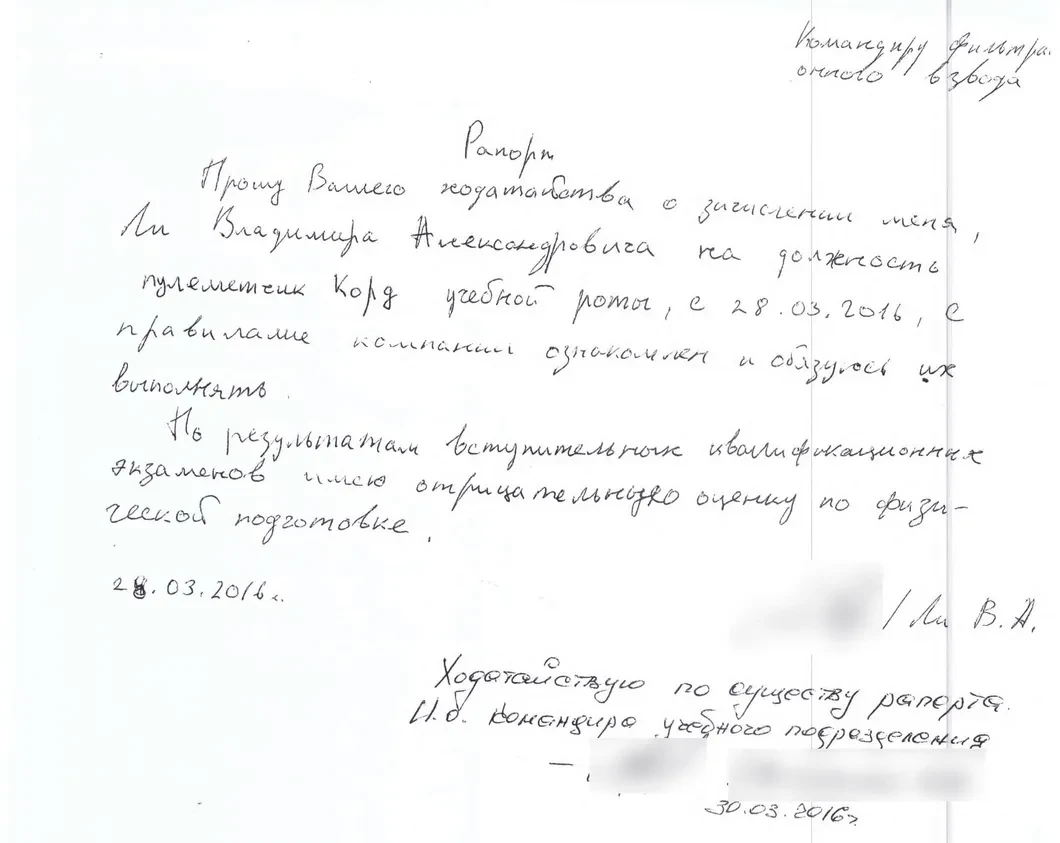 Командиру фильтра
онного взвода
Рапорт
Прошу Вашего ходатайства о зачислении меня,
Ли Владимира Александровича на должность
пулеметчик Корд учебной роты, с 28.03.2016, с
правилами компании ознакомлен и обязуюсь их
выполнять.
По результатам вступительных квалификационных
экзаменов имею отрицательную оценку по физи-
ческой подготовке.
28.03.2016г.
/ Ли В.А.
Ходатайствую по существу рапорта.
И.о. командира учебного подразделения
30.03.2016г.